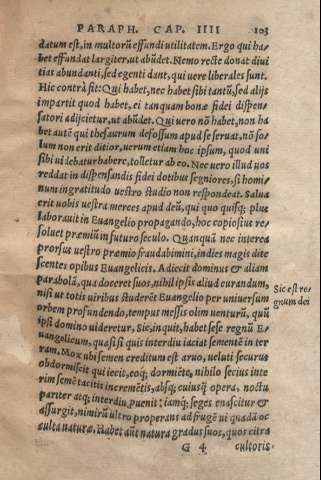 PARAPH. CAP. IIII 103
datum est, in multorū effundi utilitatem. Ergo qui ha-
bet effundat largiter, ut abūdet. Nemo recte donat diui
tias abundanti, sed egenti dant, qui uere liberales sunt.
Hic contrà fit: Qui habet, nec habet sibi tantū, sed alijs
impartit quod habet, ei tanquam bonæ fidei dispen-
satori adijcietur, ut abūdet. Qui uero nō habet, non ha
bet autē qui thesaurum defossum apud se seruat, nō so-
lum non erit ditior, uerum etiam hoc ipsum, quod uni
sibi uidebatur habere, tolletur ab eo. Nec uero illud uos
reddat in dispensandis fidei dotibus segniores, si homi-
num ingratitudo uestro studio non respondeat. Salua
erit uobis uestra merces apud deū, qui quo quisq; plus
laborauit in Euangelio propagando, hoc copiosius re-
soluet præmiū in futuro seculo. Quanquā nec interea
prorsus uestro præmio fraudabimini, indies magis dite
scentes opibus Euangelicis. Adiecit dominus & aliam
parabolā, qua doceret suos, nihil ipsis aliud curandum,
nisi ut totis uiribus studerēt Euangelio per uniuersum
orbem profundendo, tempus messis olim uenturū, quū
ipsi domino uideretur. Sic, inquit, habet sese regnū E-
uangelicum, quasi si quis interdiu iaciat sementē in ter
ram. Mox ubi semen creditum est aruo, ueluti securus
obdormiscit qui iecit, eoq; dormiēte, nihilo secius inte
rim semē tacitis incremētis, absq; cuiusq; opera, noctu
pariter atq; interdiu puenit: iamq; seges enascitur &
assurgit, nimirū ultro properans ad frugē ui quadā oc
culta naturæ. Habet aūt natura gradus suos, quos citra
G 4 cultoris
Sic est re-
gnum dei